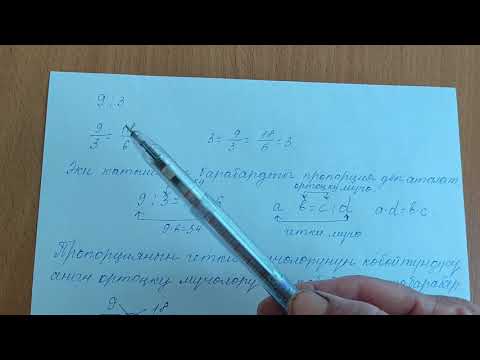 9 : 3
9/3 = 18/6 3 = 9/3 = 18/6 = 3
Эки барабардыгы пропорция деп аталат
ортоңку мүчө
9 : 3 = 6 a b = c : d a·d = b·c
9·6=54 четки мүчө
Пропорциянын четки мүчөлөрүнүн көбөйтүндүсү
анын ортоңку мүчөлөрү барабар
9 18